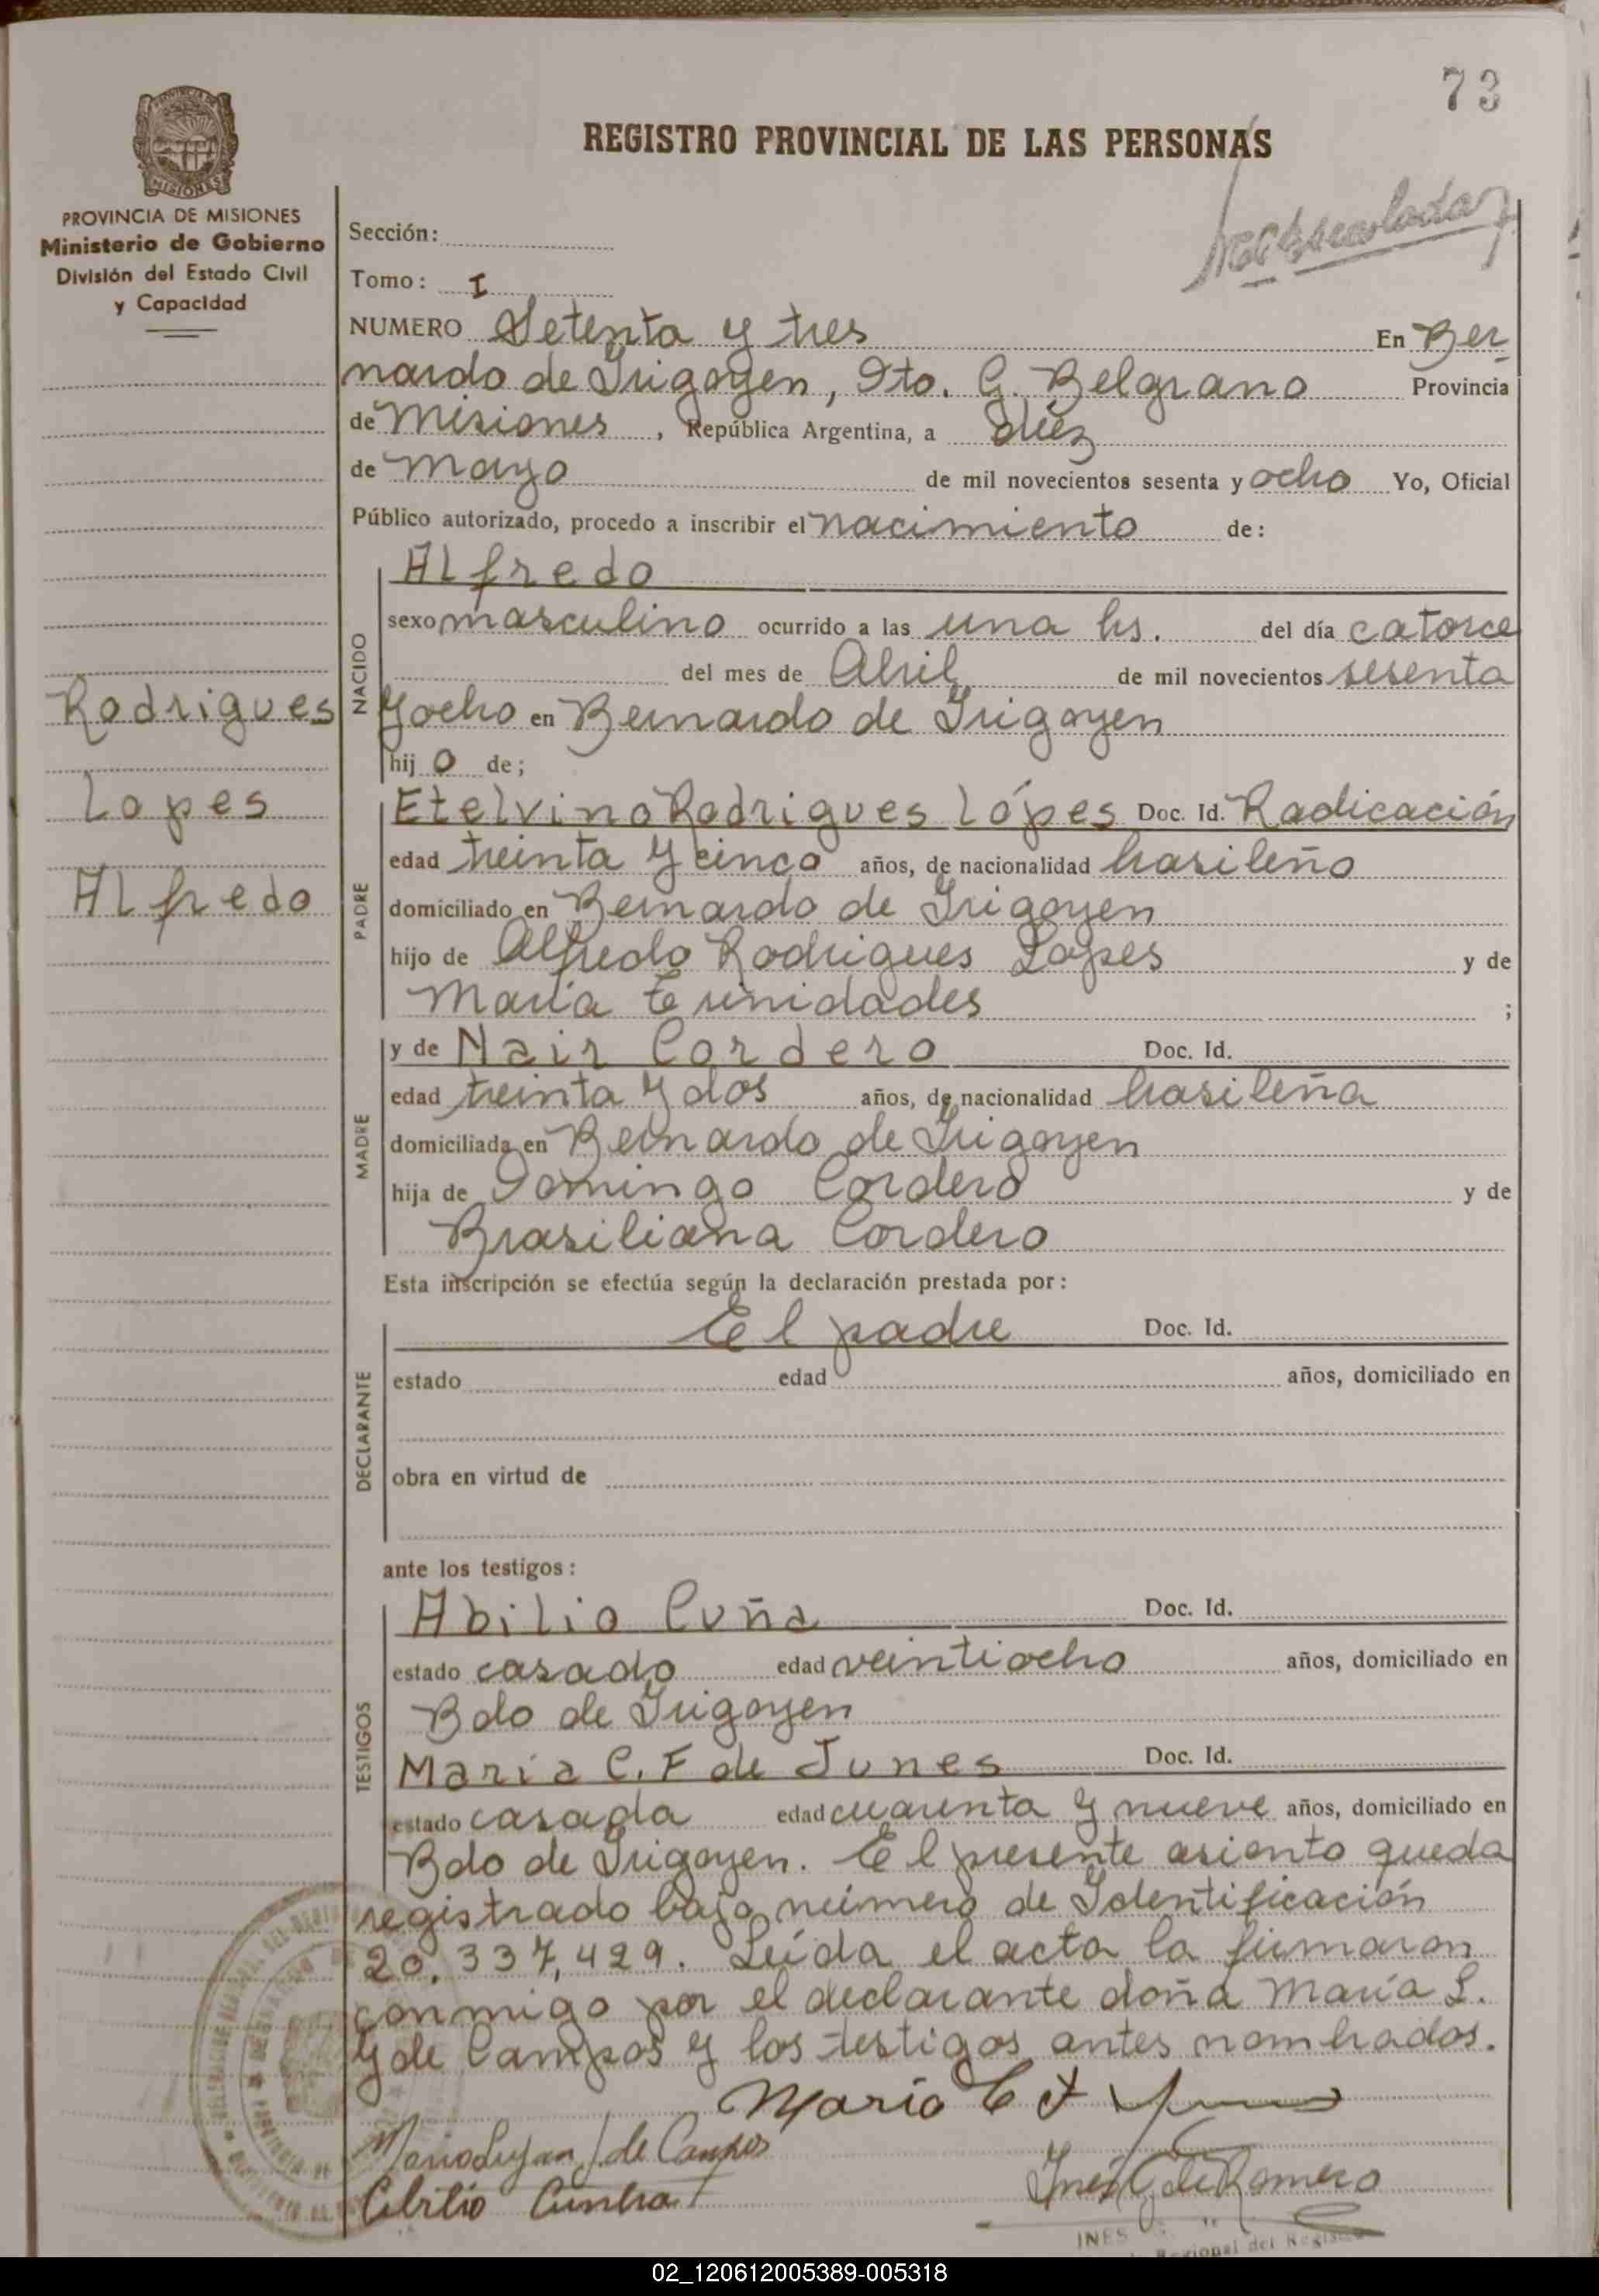 73
REGISTRO PROVINCIAL DE LAS PERSONAS
MISIONES
PROVINCIA DE MISIONES
Ministerio de Gobierno
División del Estado Civil
y Capacidad
Sección:
Tomo: I
NUMERO Setenta y tres En Ber
nardo de Irigoyen, Dto. G. Belgrano Provincia
de Misiones, República Argentina, a diez
de mayo de mil novecientos sesenta y ocho Yo, Oficial
Público autorizado, procedo a inscribir el nacimiento de:
NACIDO
Alfredo
sexo masculino ocurrido a las una hs. del día catorce
del mes de Abril de mil novecientos sesenta
y ocho en Bernardo de Irigoyen
hij o de;
Rodrigues
Lopes
Alfredo
PADRE
Etelvino Rodrigues Lópes Doc. Id. Radicación
edad treinta y cinco años, de nacionalidad brasileño
domiciliado en Bernardo de Irigoyen
hijo de Alfredo Rodrigues Lopes y de
María Trinidades ;
MADRE
y de Nair Cordero Doc. Id.
edad treinta y dos años, de nacionalidad brasileña
domiciliada en Bernardo de Irigoyen
hija de Domingo Cordero y de
Brasiliana Cordero
Esta inscripción se efectúa según la declaración prestada por:
DECLARANTE
El padre Doc. Id.
estado edad años, domiciliado en
obra en virtud de
ante los testigos:
TESTIGOS
Abilio Cuña Doc. Id.
estado casado edad veintiocho años, domiciliado en
Bdo de Irigoyen
María C. F de Junes Doc. Id.
estado casada edad cuarenta y nueve años, domiciliado en
Bdo de Irigoyen. El presente asiento queda
registrado bajo número de Identificación
20.337,429. Leída el acta la firmaron
conmigo por el declarante doña María L.
Y de Campos y los testigos antes nombrados.
Maria C F
Maria Lujan J. de Campos
Abilio Cunha
Inés G. de Romero
INES
Regional del Registro
02_120612005389-005318